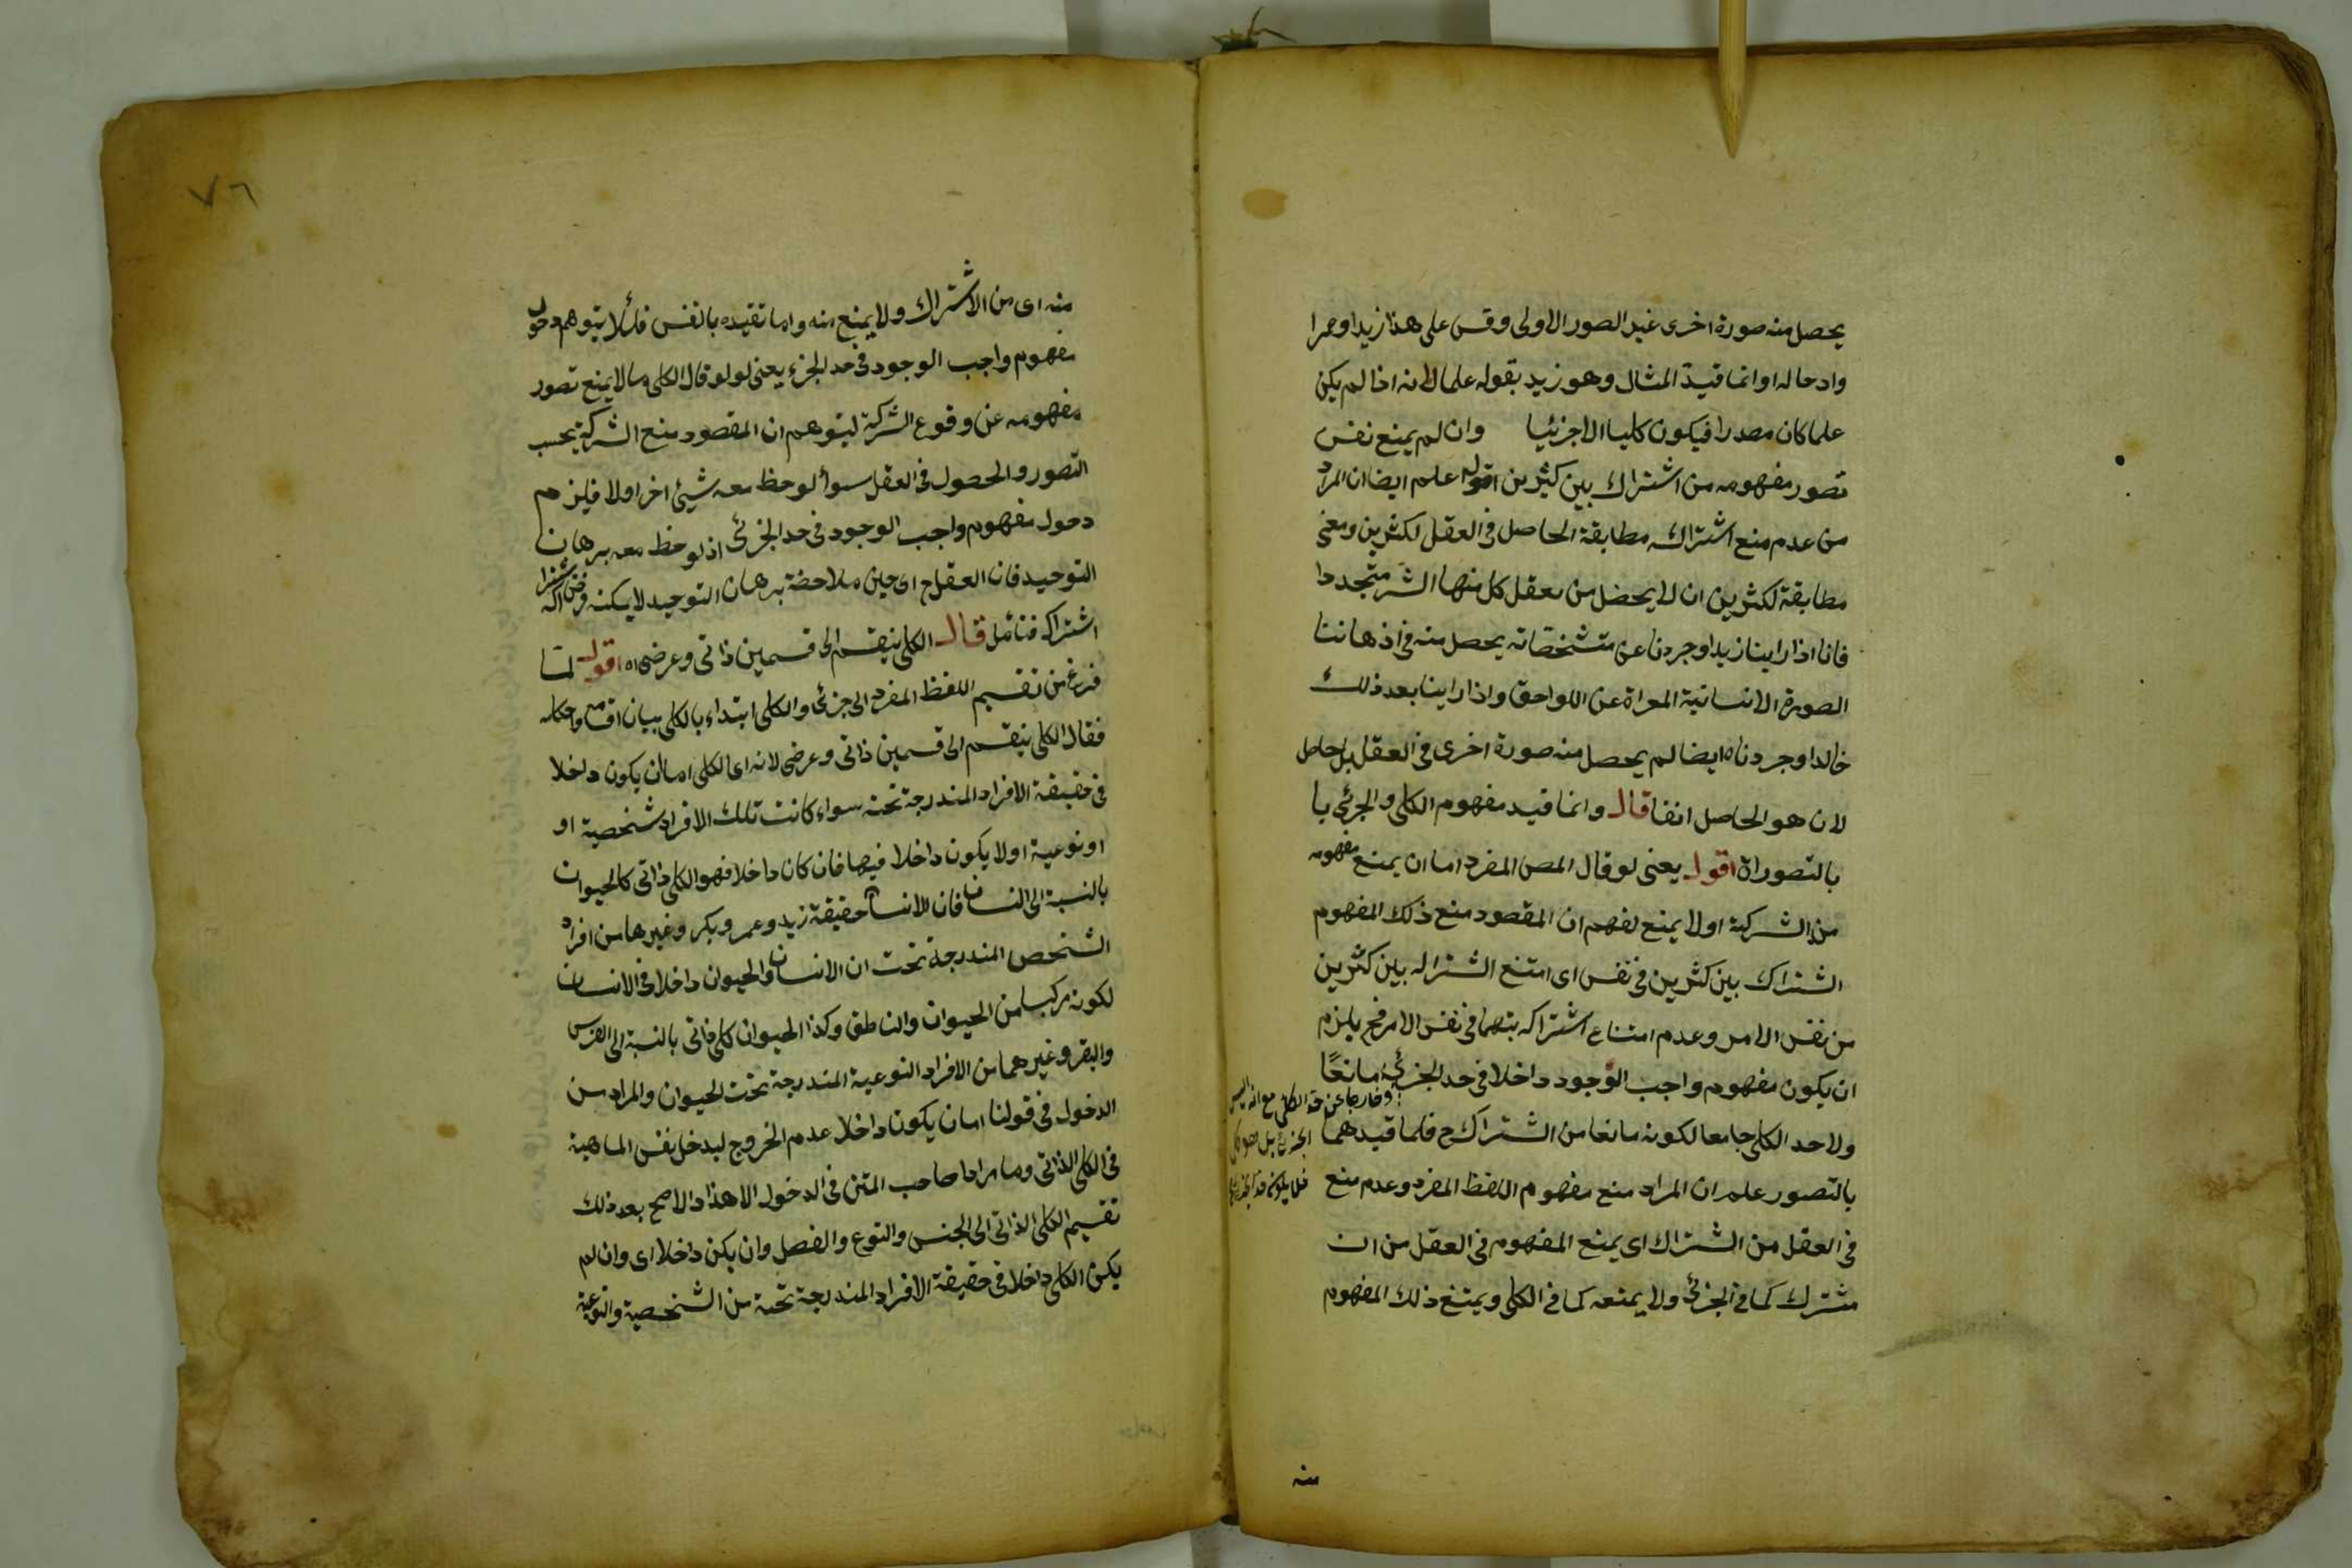 يحصل منه صورة اخرى غير الصور الاولى وقس على هذا زيدا وعمرا
وادحاله او انما قيد المثال وهو زيد بقوله علما لانه اذا لم يكن
علما كان مصدرا فيكون كليا الاجزئيا وان لم يمنع نفس
تصور مفهومه من اشتراك بين كثيرين اقول اعلم ايضا ان المراد
من عدم منع اشتراكه مطابقة الحاصل في العقل لكثرين ومعنى
مطابقة لكثرين ان لا يحضل من تعقل كل منها اثر متجددا
فانا اذا راينا زيدا وجردنا عن مشخصاته يحصل منه في اذهاننا
الصورة الانسانية المعراة عن اللواحق واذا راينا بعد ذلك
خالدا وجردناه ايضا لم يحصل منه صورة اخرى في العقل بل حاصل
لان هو الحاصل انفا قال وانما قيد مفهوم الكلى والجزئى با
بالتصوراة اقول يعنى لو قال المص المفرد اما ان يمنع مفهومه
من الشركة او لا يمنع لفهم ان المقصود منع ذلك المفهوم
الشتراك بين كثرين في نفس اى امتنع الشتراله بين كثرين
من نفس الامر وعدم امتناع اشتراكه بتهما في نفس الامر فح يلزم
ان يكون مفهوم واجب الوجود داخلا في حد الجزئى مانعًا
وخارجا عن حد الكلى مع انه ليس
ولا حد الكلى جامعا لكونه مانعا من الشتراك ح فلما قيدهما
الجزئى بل هو كلى
بالتصور علم ان المراد منع مفهوم اللفظ المفرد وعدم منع
فلا يكون حد الجزئى
في العقل من الشتراك اى يمنع المفهوم في العقل من ان
مشترك كما في الجزئى ولا يمتعه كما في الكلى ويمتنع ذلك المفهوم
منه
٧٦
منه اى من الاشتراك ولا يمنع منه واما تقيده بالنفس فلئلا يتوهم دخول
مفهوم واجب الوجود في حد الجزء يعنى لو لو قال الكلى ما لا يمنع تصور
مفهومه عن وقوع الشركة ليتوهم ان المقصود منع الشركة بحسب
التصور والحصول في العقل سوأ لوحظ معه شيئ اخر اولا فيلزم
دحول مفهوم واجب الوجود في حد الجزئى اذ لوحظ معه برهان
التوحيد فان العقل ح اى حين ملاحضة برهان التوحيد لا يمكنه فرض اشتراكه
اشتراك فتائمل قال الكلى ينقسم الى قسمين ذاتى وعرضى اه اقول لما
فرغ من تقسيم اللفظ المفرد الى جزئى والكلى ابتداء بالكلى ببيان اقسامه واحكامه
فقال الكلى ينقسم الى قسمين ذاتى وعرضى لانه اى الكلى اما ان يكون داخلا
في حقيقة الافراد المندرجة تحته سواء كانت تلك الافراد شخصية او
او نوعية اولا يكون داخلا فيها فان كان داخلا فهو الكلى ذاتى كالحيوان
بالنسبة الى النسان فان للانسان حقيقة زيد وعمر وبكر وغيرها من افراد
الشخص المندرجة تحت ان الانسان والحيوان داخلا في الانسان
لكونه مركبا من الحيوان والناطق وكذا الحيوان كلى ذاتى بالنسبة الى الفرس
والبقر وغيرهما من الافراد النوعية المندرجة تحت الحيوان والمراد من
الدخول في قولنا اما ان يكون داخلا عدم الخروج ليدخل نفس الماهية
في الكلى الذاتى وما مرادا صاحب المتن في الدخول الا هذا والا صح بعد ذلك
تقسيم الكلى الذاتى الى الجنس والنوع والفصل وان يكن داخلا اى وان لم
يكن الكلى داخلا في حقيقة الافراد المندرجة تحته من الشخصية والنوعية